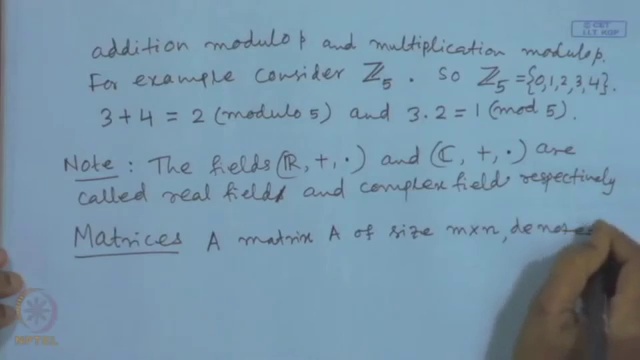 © CET
I.I.T. KGP
addition modulo p and multiplication modulo p.
For example consider ℤ₅. So ℤ₅ = {0,1,2,3,4}.
3 + 4 = 2 (modulo 5) and 3 · 2 = 1 (mod 5).
Note: The fields (ℝ, +, ·) and (ℂ, +, ·) are
called real field and complex field respectively
Matrices A matrix A of size m×n,
NPTEL